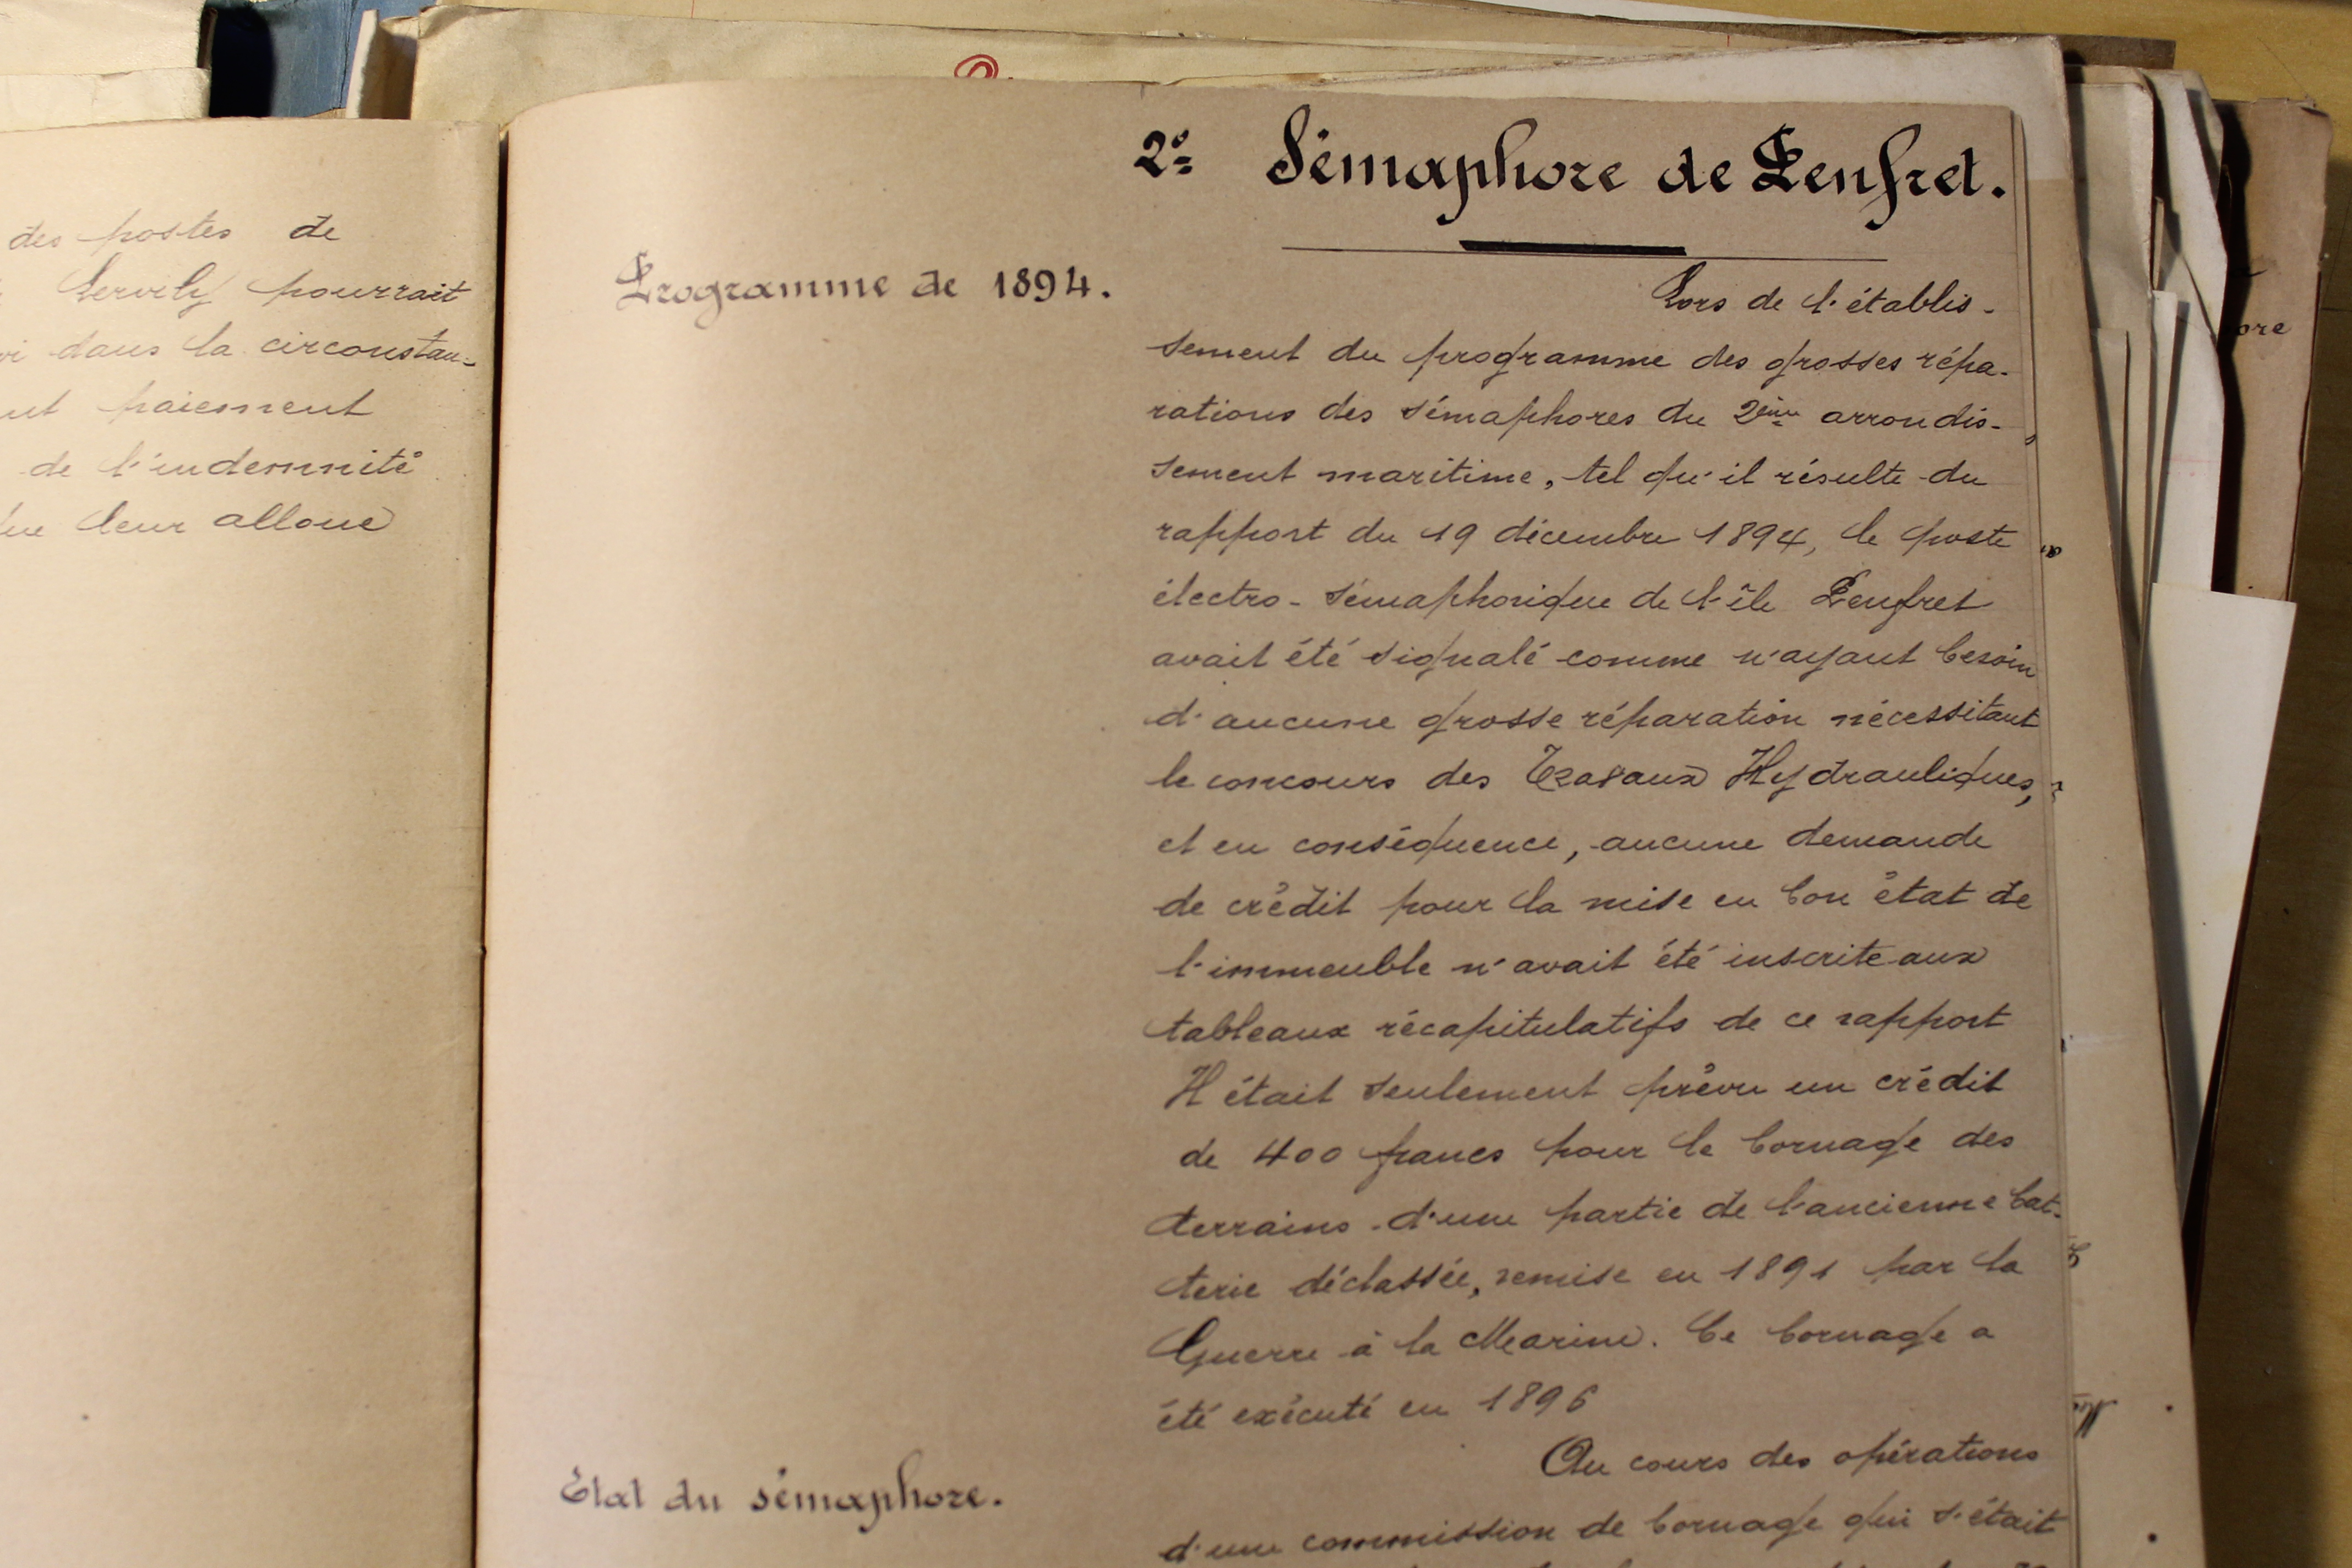 des postes de
pourrait
dans la circonstan-
paiement
de l'indemnité
leur alloue
2º Sémaphore de Penfret.
Programme de 1894.
Lors de l'établis-
sement du programme des grosses répa-
rations des sémaphores du 2ème arrondis-
sement maritime, tel qu'il résulte du
rapport du 19 décembre 1894, le poste
électro-sémaphorique de l'île Penfret
avait été signalé comme n'ayant besoin
d'aucune grosse réparation nécessitant
le concours des Travaux Hydrauliques,
et en conséquence, aucune demande
de crédit pour la mise en bon état de
l'immeuble n'avait été inscrite aux
tableaux récapitulatifs de ce rapport
Il était seulement prévu un crédit
de 400 francs pour le bornage des
terrains d'une partie de l'ancienne bat-
terie déclassée, remise en 1891 par la
Guerre à la Marine. Ce bornage a
été exécuté en 1896
Etat du sémaphore.
Au cours des opérations
d'une commission de bornage qui s'était